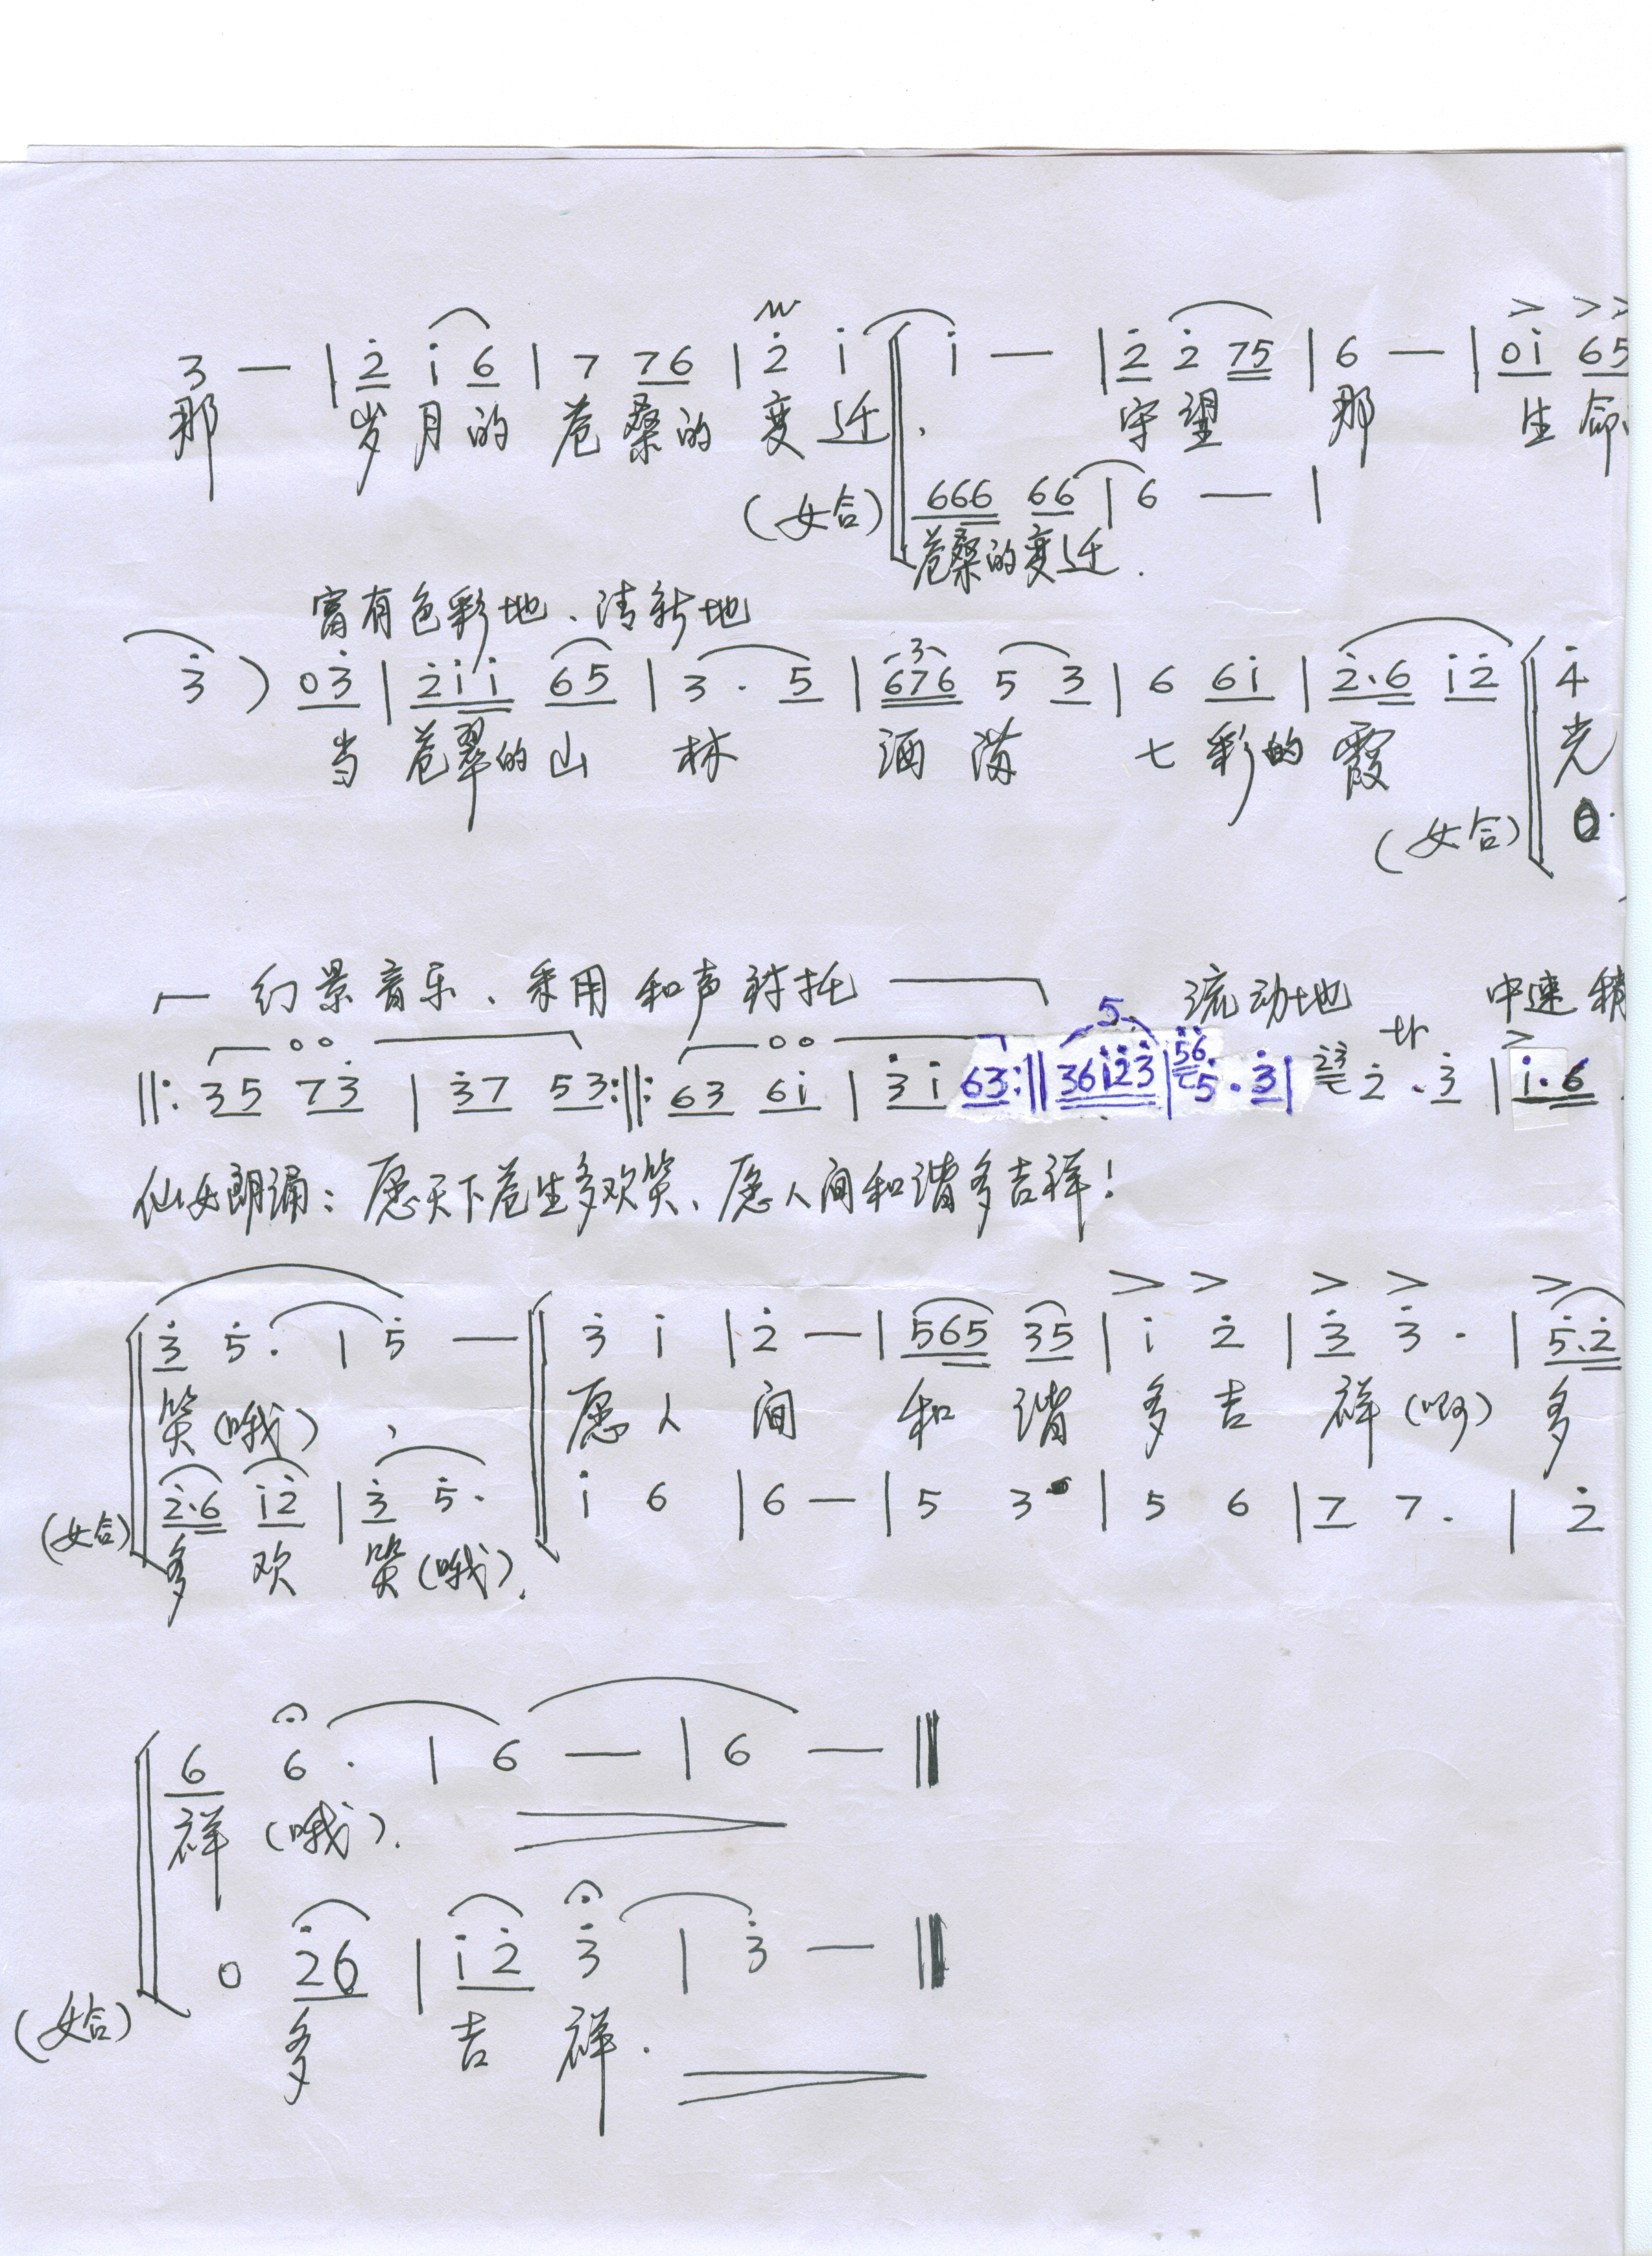 3 — | 2̇ i̇ 6 | 7 76 | 2̇ i̇ i̇ — | 2̇ 2̇ 75 | 6 — | 0i̇ 65
那 岁月的 苍桑的 变迁. 守望 那 生命
(女合) 666 66 | 6 — |
苍桑的变迁.
富有色彩地、清新地
3̇ ) 03̇ | 2̇i̇i̇ 65 | 3 · 5 | 3 676 5 3 | 6 6i̇ | 2̇·6 i̇2̇ 4̇
当 苍翠的山 林 洒 满 七 彩的 霞 光
(女合) 0·
幻景音乐、采用和声衬托 流动地 中速 稍
||: 35 73̇ | 3̇7 53 :||: 63 6i̇ | 3̇ i̇ 63 :|| 5 36i̇2̇3̇ | 5̇6̇ 5̇ · 3̇ | 2̇3̇ 2̇ tr · 3̇ | i̇·6
仙女朗诵: 愿天下苍生多欢笑、愿人间和谐多吉祥!
3̇ 5̇ · | 5̇ — 3̇ i̇ | 2̇ — | 565 35 | i̇ 2̇ | 3̇ 3̇ · | 5̇·2̇
笑(哦), 愿人 间 和 谐 多 吉 祥(啊) 多
2̇·6 i̇2̇ | 3̇ 5̇ · i̇ 6 | 6 — | 5 3 | 5 6 | 7 7 · | 2̇
(女合) 多 欢 笑(哦).
6 6 · | 6 — | 6 — ||
祥 (哦).
0 2̇6 | i̇ 2̇ 3̇ | 3̇ — ||
(女合) 多 吉 祥.